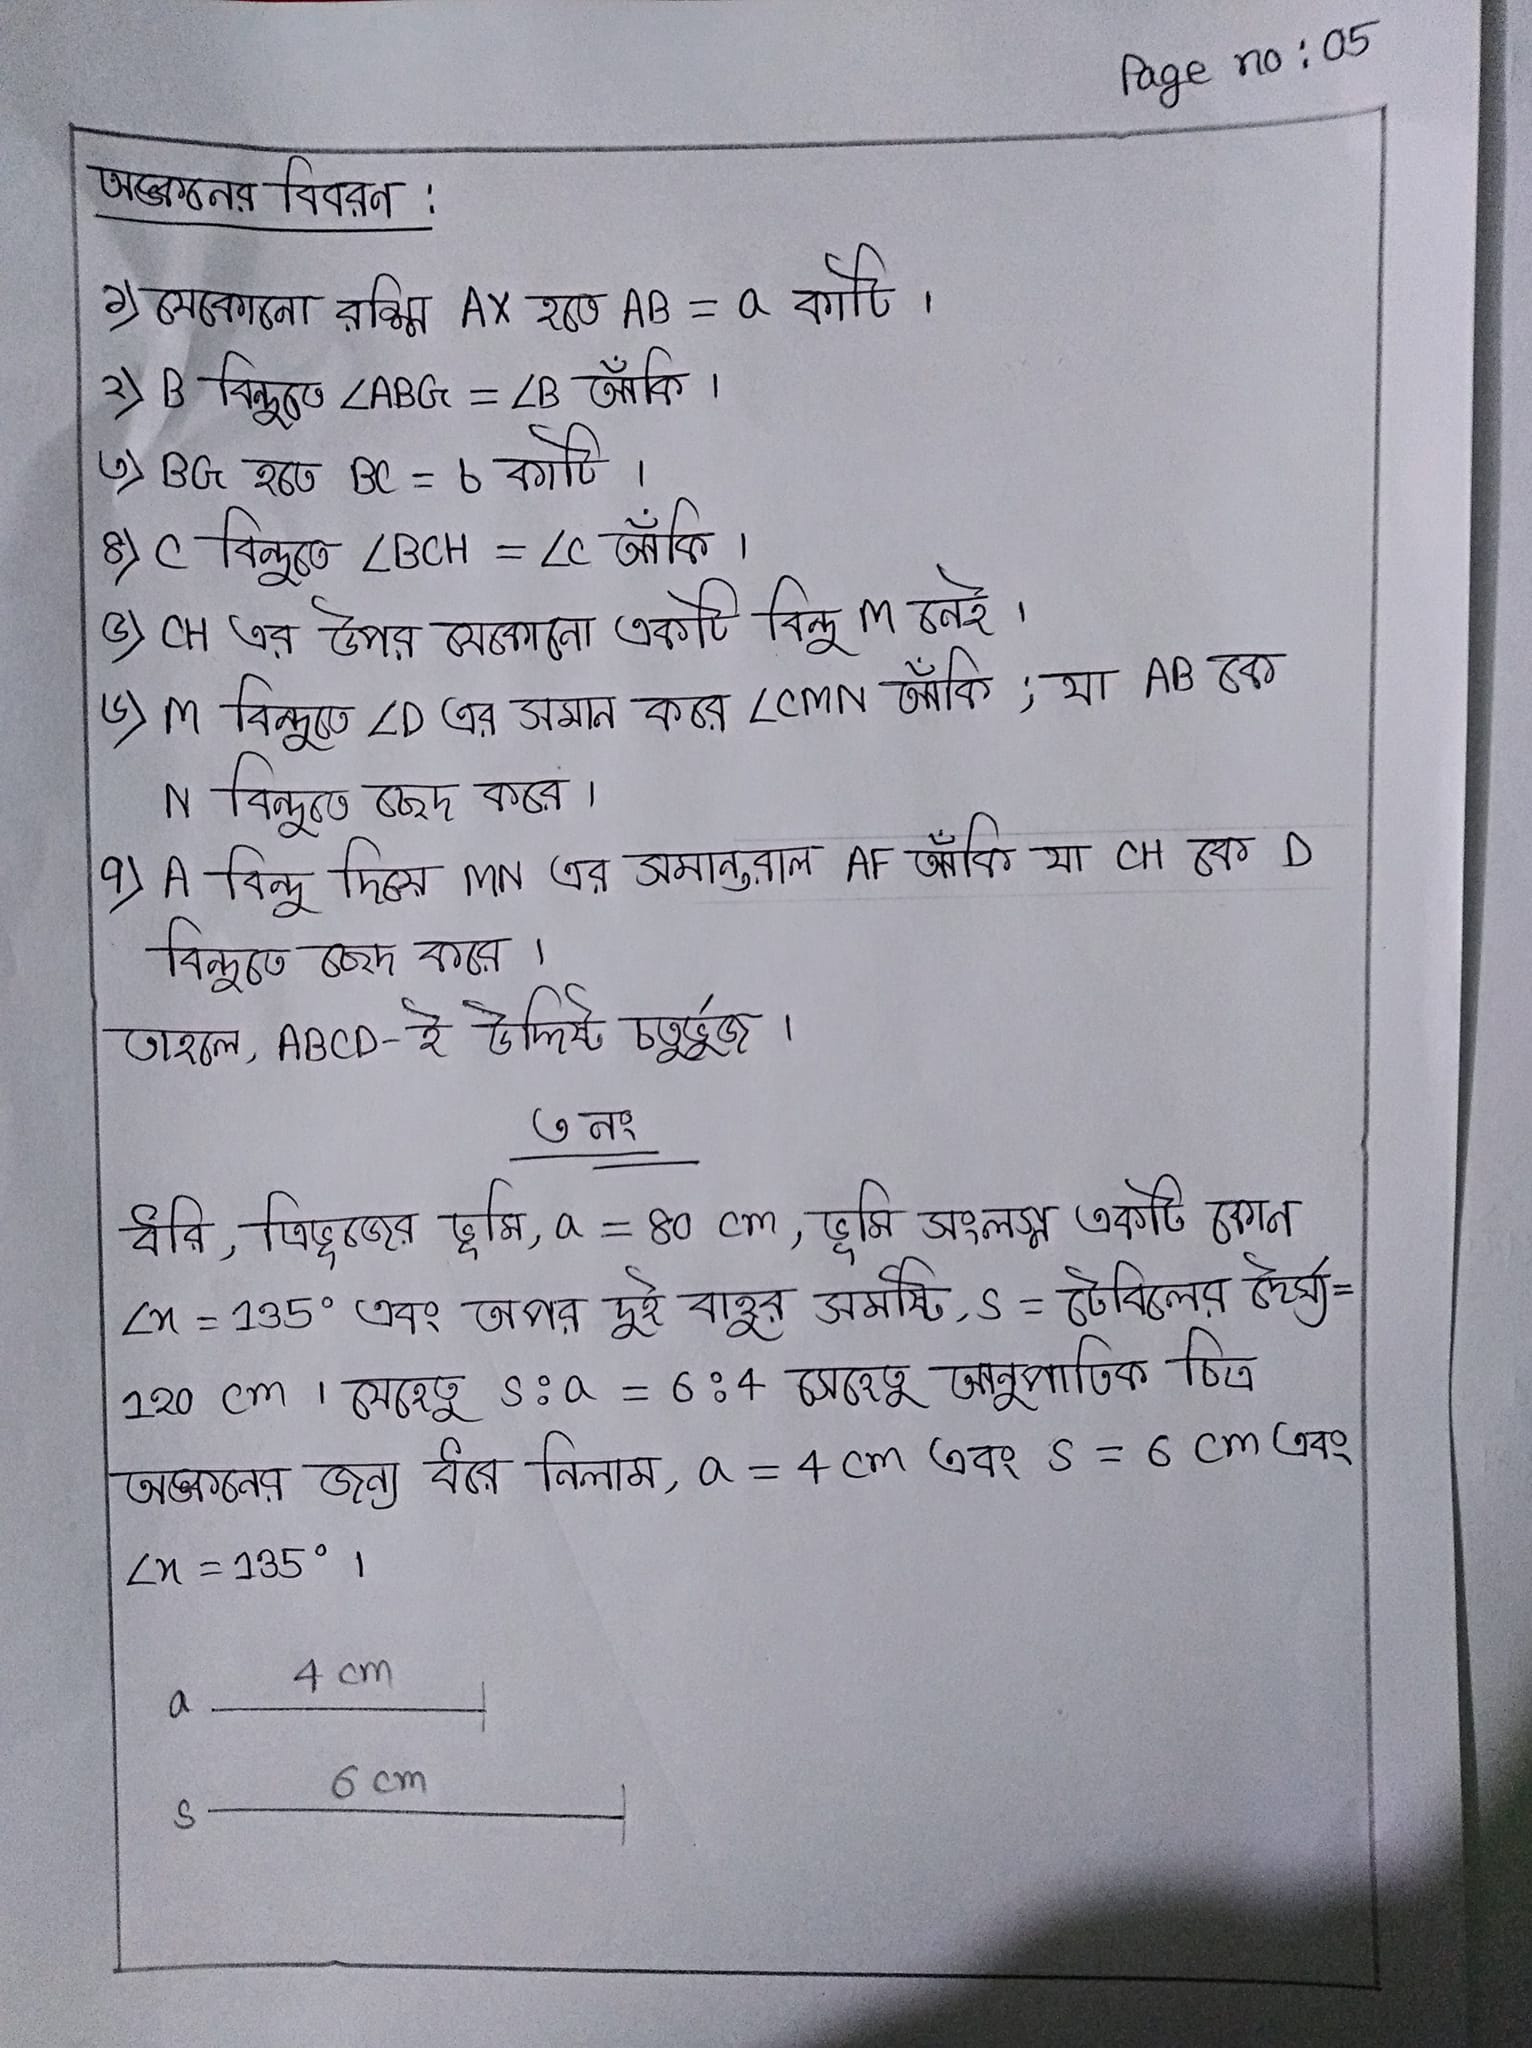 Page no : 05
অঙ্কনের বিবরন :
১) যেকোনো রশ্মি AX হতে AB = a কাটি ।
২) B বিন্দুতে ∠ABG = ∠B আঁকি ।
৩) BG হতে BC = b কাটি ।
৪) C বিন্দুতে ∠BCH = ∠C আঁকি ।
৫) CH এর উপর যেকোনো একটি বিন্দু M নেই ।
৬) M বিন্দুতে ∠D এর সমান করে ∠CMN আঁকি ; যা AB কে
N বিন্দুতে ছেদ করে ।
৭) A বিন্দু দিয়ে MN এর সমান্তরাল AF আঁকি যা CH কে D
বিন্দুতে ছেদ করে ।
তাহলে, ABCD-ই উদ্দিষ্ট চতুর্ভুজ ।
৩ নং
ধরি, ত্রিভুজের ভূমি, a = 80 cm, ভূমি সংলগ্ন একটি কোন
∠x = 135° এবং অপর দুই বাহুর সমষ্টি, s = টেবিলের দৈর্ঘ্য =
120 cm । যেহেতু s : a = 6 : 4 সেহেতু আনুপাতিক চিত্র
অঙ্কনের জন্য ধরে নিলাম, a = 4 cm এবং s = 6 cm এবং
∠x = 135° ।
4 cm
a
6 cm
s